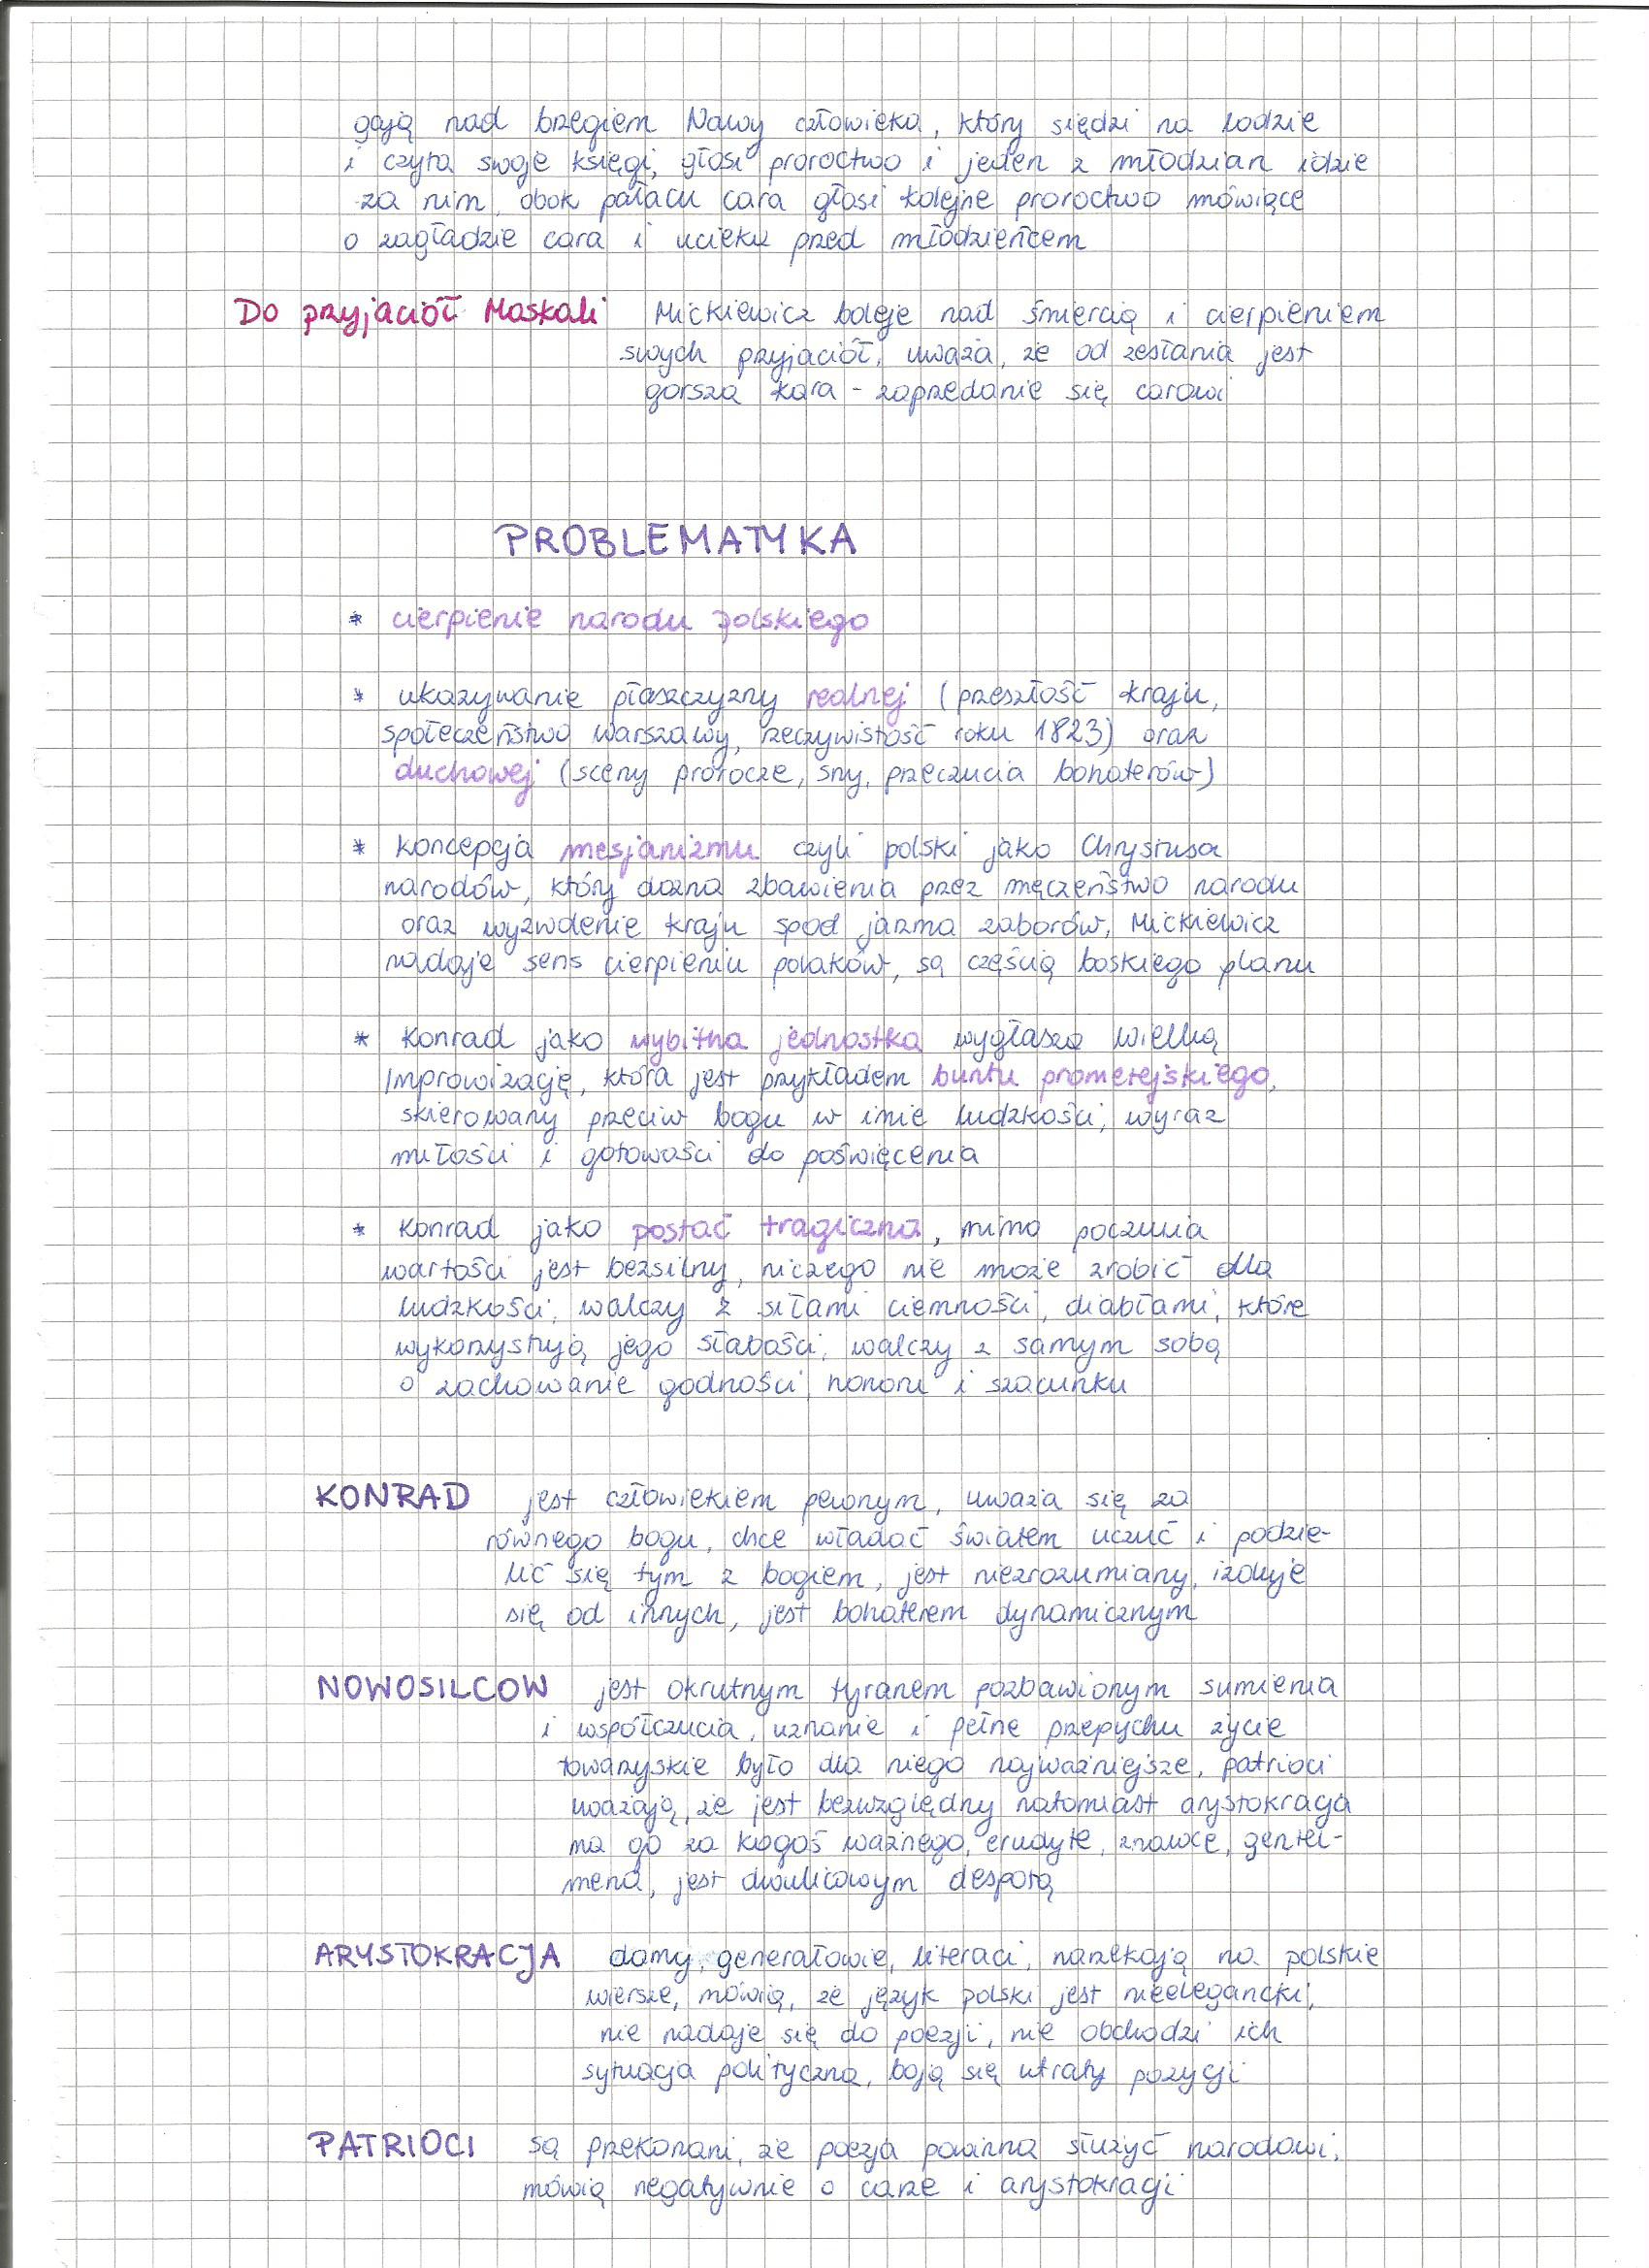 gają nad brzegiem Nawy człowieka, który siędzi na lodzie
i czyta swoje księgi, głosi proroctwo i jeden z młodzian idzie
za nim, obok pałacu cara głosi kolejne proroctwo mówiące
o zagładzie cara i ucieka przed młodzieńcem
Do przyjaciół Moskali Mickiewicz boleje nad śmiercią i cierpieniem
swych przyjaciół, uważa, że od zesłania jest
gorsza kara - zaprzedanie się carowi
PROBLEMATYKA
* cierpienie narodu polskiego
* ukazywanie płaszczyzny realnej (przeszłość kraju,
społeczeństwo warszawy, rzeczywistość roku 1823) oraz
duchowej (sceny prorocze, sny, przeczucia bohaterów)
* koncepcja mesjanizmu czyli polski jako Chrystusa
narodów, który dozna zbawienia przez męczeństwo narodu
oraz wyzwolenie kraju spod jarzma zaborów, Mickiewicz
nadaje sens cierpieniu polaków, są częścią boskiego planu
* Konrad jako wybitna jednostka wygłasza Wielką
Improwizację, która jest przykładem buntu prometejskiego,
skierowany przeciw bogu w imie ludzkości, wyraz
miłości i gotowości do poświęcenia
* Konrad jako postać tragiczna, mimo poczucia
wartości jest bezsilny, niczego nie może zrobić dla
ludzkości, walczy z siłami ciemności, diabłami, które
wykorzystują jego słabości, walczy z samym sobą
o zachowanie godności, honoru i szacunku
KONRAD jest człowiekiem pewnym, uważa się za
równego bogu, chce władać światem uczuć i podzie-
lić się tym z bogiem, jest niezrozumiany, izoluje
się od innych, jest bohaterem dynamicznym
NOWOSILCOW jest okrutnym tyranem pozbawionym sumienia
i współczucia, uznanie i pełne przepychu życie
towarzyskie było dla niego najważniejsze, patrioci
uważają, że jest bezwzględny natomiast arystokracja
ma go za kogoś ważnego, erudytę, znawcę, gentel-
mena, jest dwulicowym despotą
ARYSTOKRACJA damy, generałowie, literaci, narzekają na polskie
wiersze, mówią, że język polski jest nieelegancki,
nie nadaje się do poezji, nie obchodzi ich
sytuacja polityczna, boją się utraty pozycji
PATRIOCI są przekonani, że poezja powinna służyć narodowi,
mówią negatywnie o carze i arystokracji